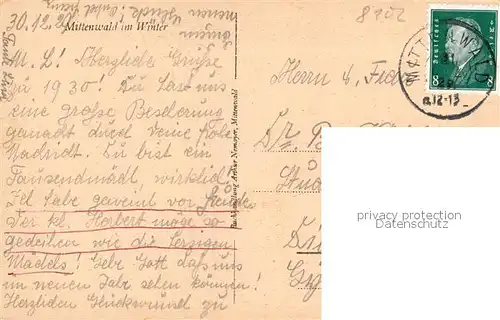 30.12.29
8902
Mittenwald im Winter
M. L.! Herzliche Grüße
zu 1930! Du hast uns
eine große Bescherung
gemacht durch deine frohe
Nachricht. Du bist ein
Tausendmadl, wirklich!
habe geweint vor Freude
Der kl. Herbert möge so
gedeihen wie die herzigen
Mädels! Gebe Gott daß uns
im neuen Jahr sehen können!
Herzlichen Glückwunsch zu
Buchhandlung Arthur Nemayer, Mittenwald
Herrn u. Frau
Dr.
Deutsches Reich
8
MITTENWALD
12-13
privacy protection
Datenschutz